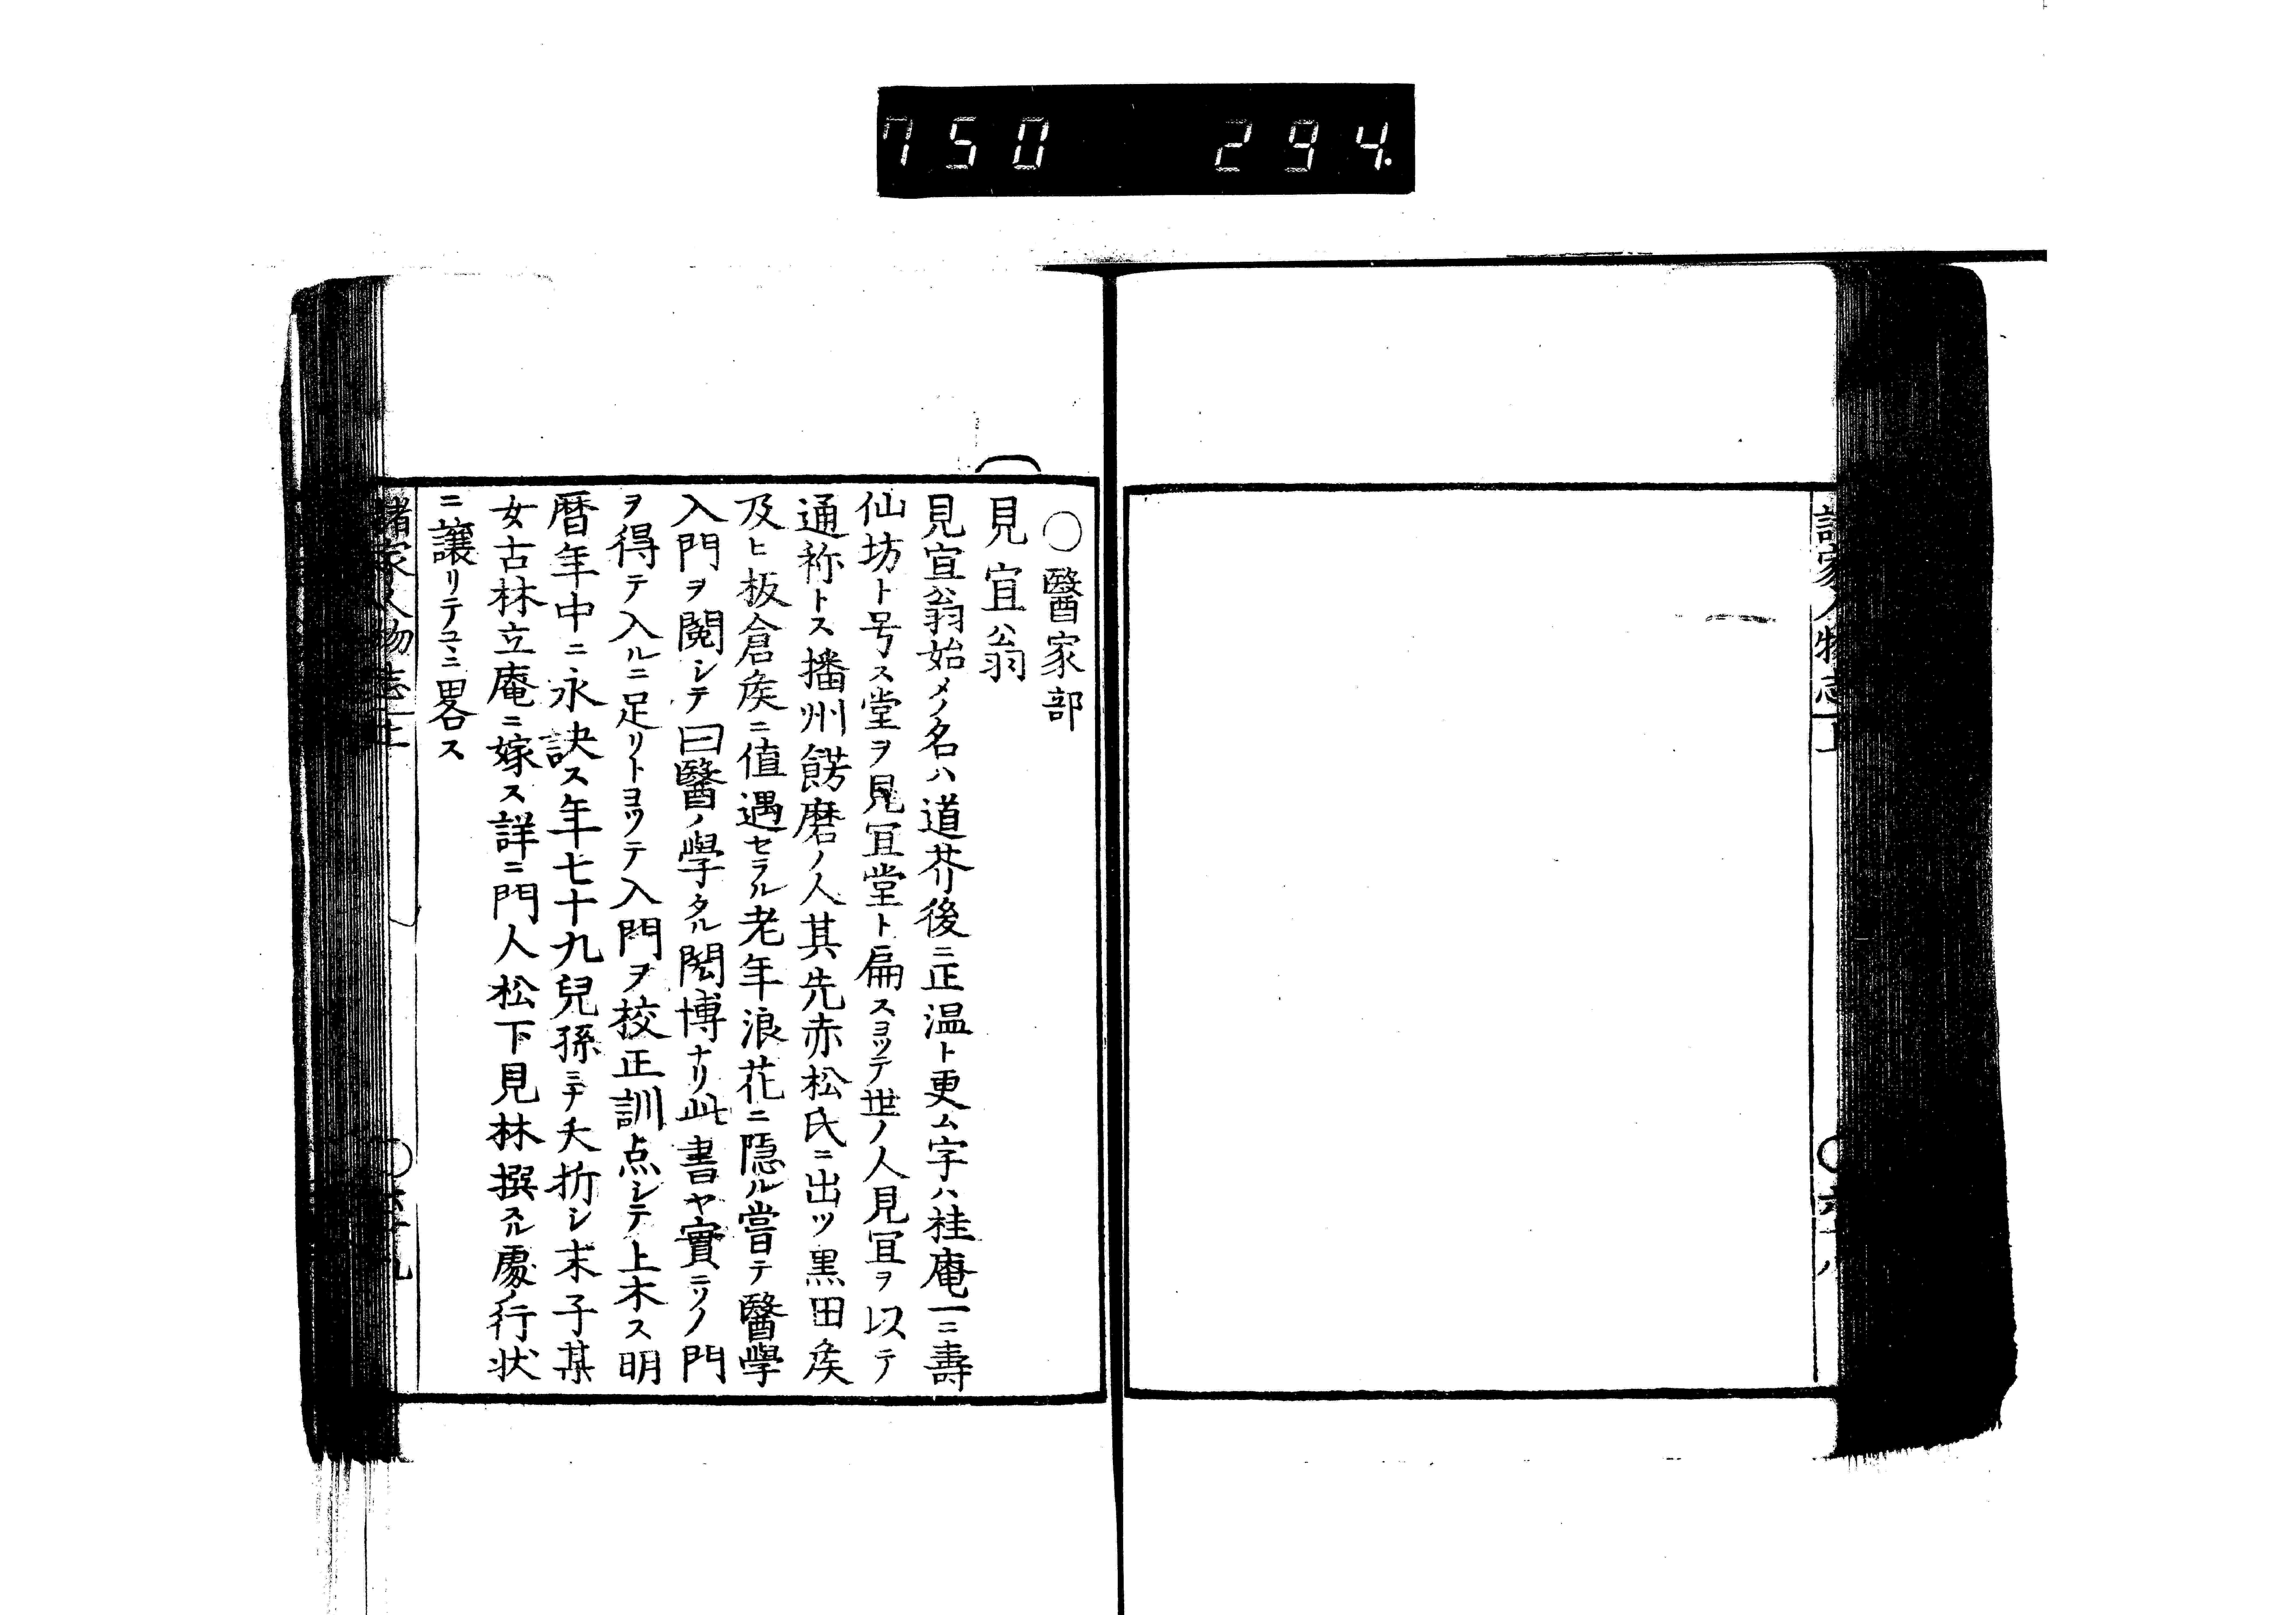 750 294.
諸家人物志
○醫家部
見宜翁
見宜翁始メノ名ハ道芥後ニ正温ト更ム字ハ桂庵一ニ壽
仙坊ト号ス堂ヲ見宜堂ト扁スヨッテ世ノ人見宜ヲ以テ
通称トス播州餝磨ノ人其先赤松氏ニ出ツ黒田矦
及ヒ板倉矦ニ値遇セラル老年浪花ニ隠ル嘗テ醫學
入門ヲ閲シテ曰醫ノ學タル閎博ナリ此書ヤ實ニソノ門
ヲ得テ入ルニ足リトヨッテ入門ヲ校正訓点シテ上木ス明
暦年中ニ永訣ス年七十九兒孫ミナ夭折シ末子某
女古林立庵ニ嫁ス詳ニ門人松下見林撰スル處ノ行状
ニ譲リテコヽニ畧ス
諸家人物志上 ○六十九